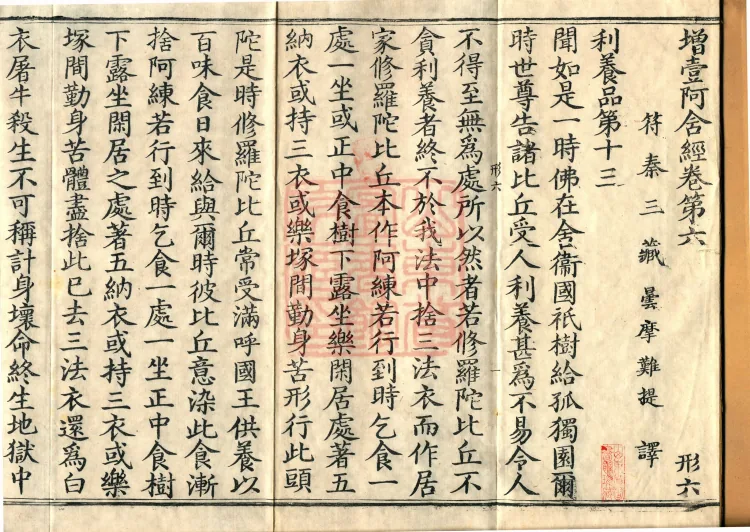 增壹阿含經卷第六 形六
符秦三藏曇摩難提 譯
利養品第十三
聞如是一時佛在舍衞國祇樹給孤獨園爾
時世尊告諸比丘受人利養甚爲不易令人
不得至無爲處所以然者若修羅陀比丘不
貪利養者終不於我法中捨三法衣而作居
家修羅陀比丘本作阿練若行到時乞食一
處一坐或正中食樹下露坐樂閑居處著五
納衣或持三衣或樂塚間勤身苦形行此頭
陀是時修羅陀比丘常受滿呼國王供養以
百味食日來給與爾時彼比丘意染此食漸
捨阿練若行到時乞食一處一坐正中食樹
下露坐閑居之處著五納衣或持三衣或樂
塚間勤身苦體盡捨此已去三法衣還爲白
衣屠牛殺生不可稱計身壞命終生地獄中
形六
一